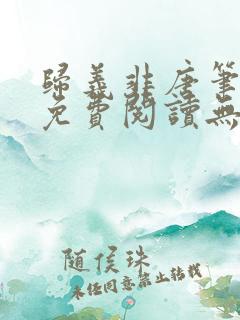 歸義非唐筆
免費閱讀無
隨侯珠
未經同意禁止轉載